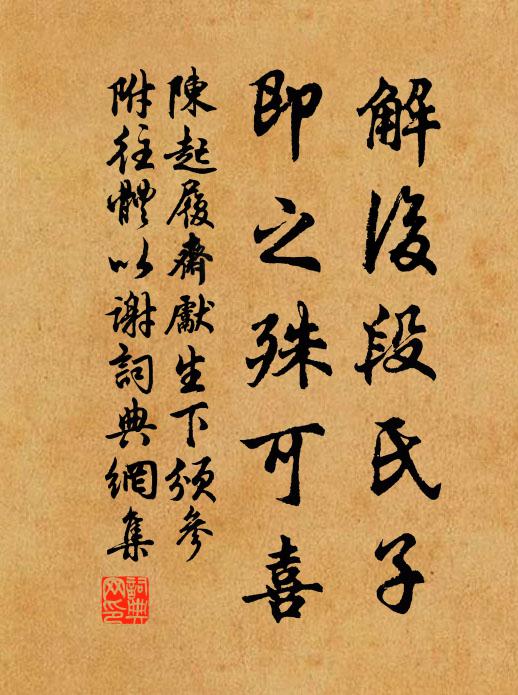 解后段氏子
即之殊可喜
陳起履齋獻生下頒參
附往體以谢詞典網集
詞典網印